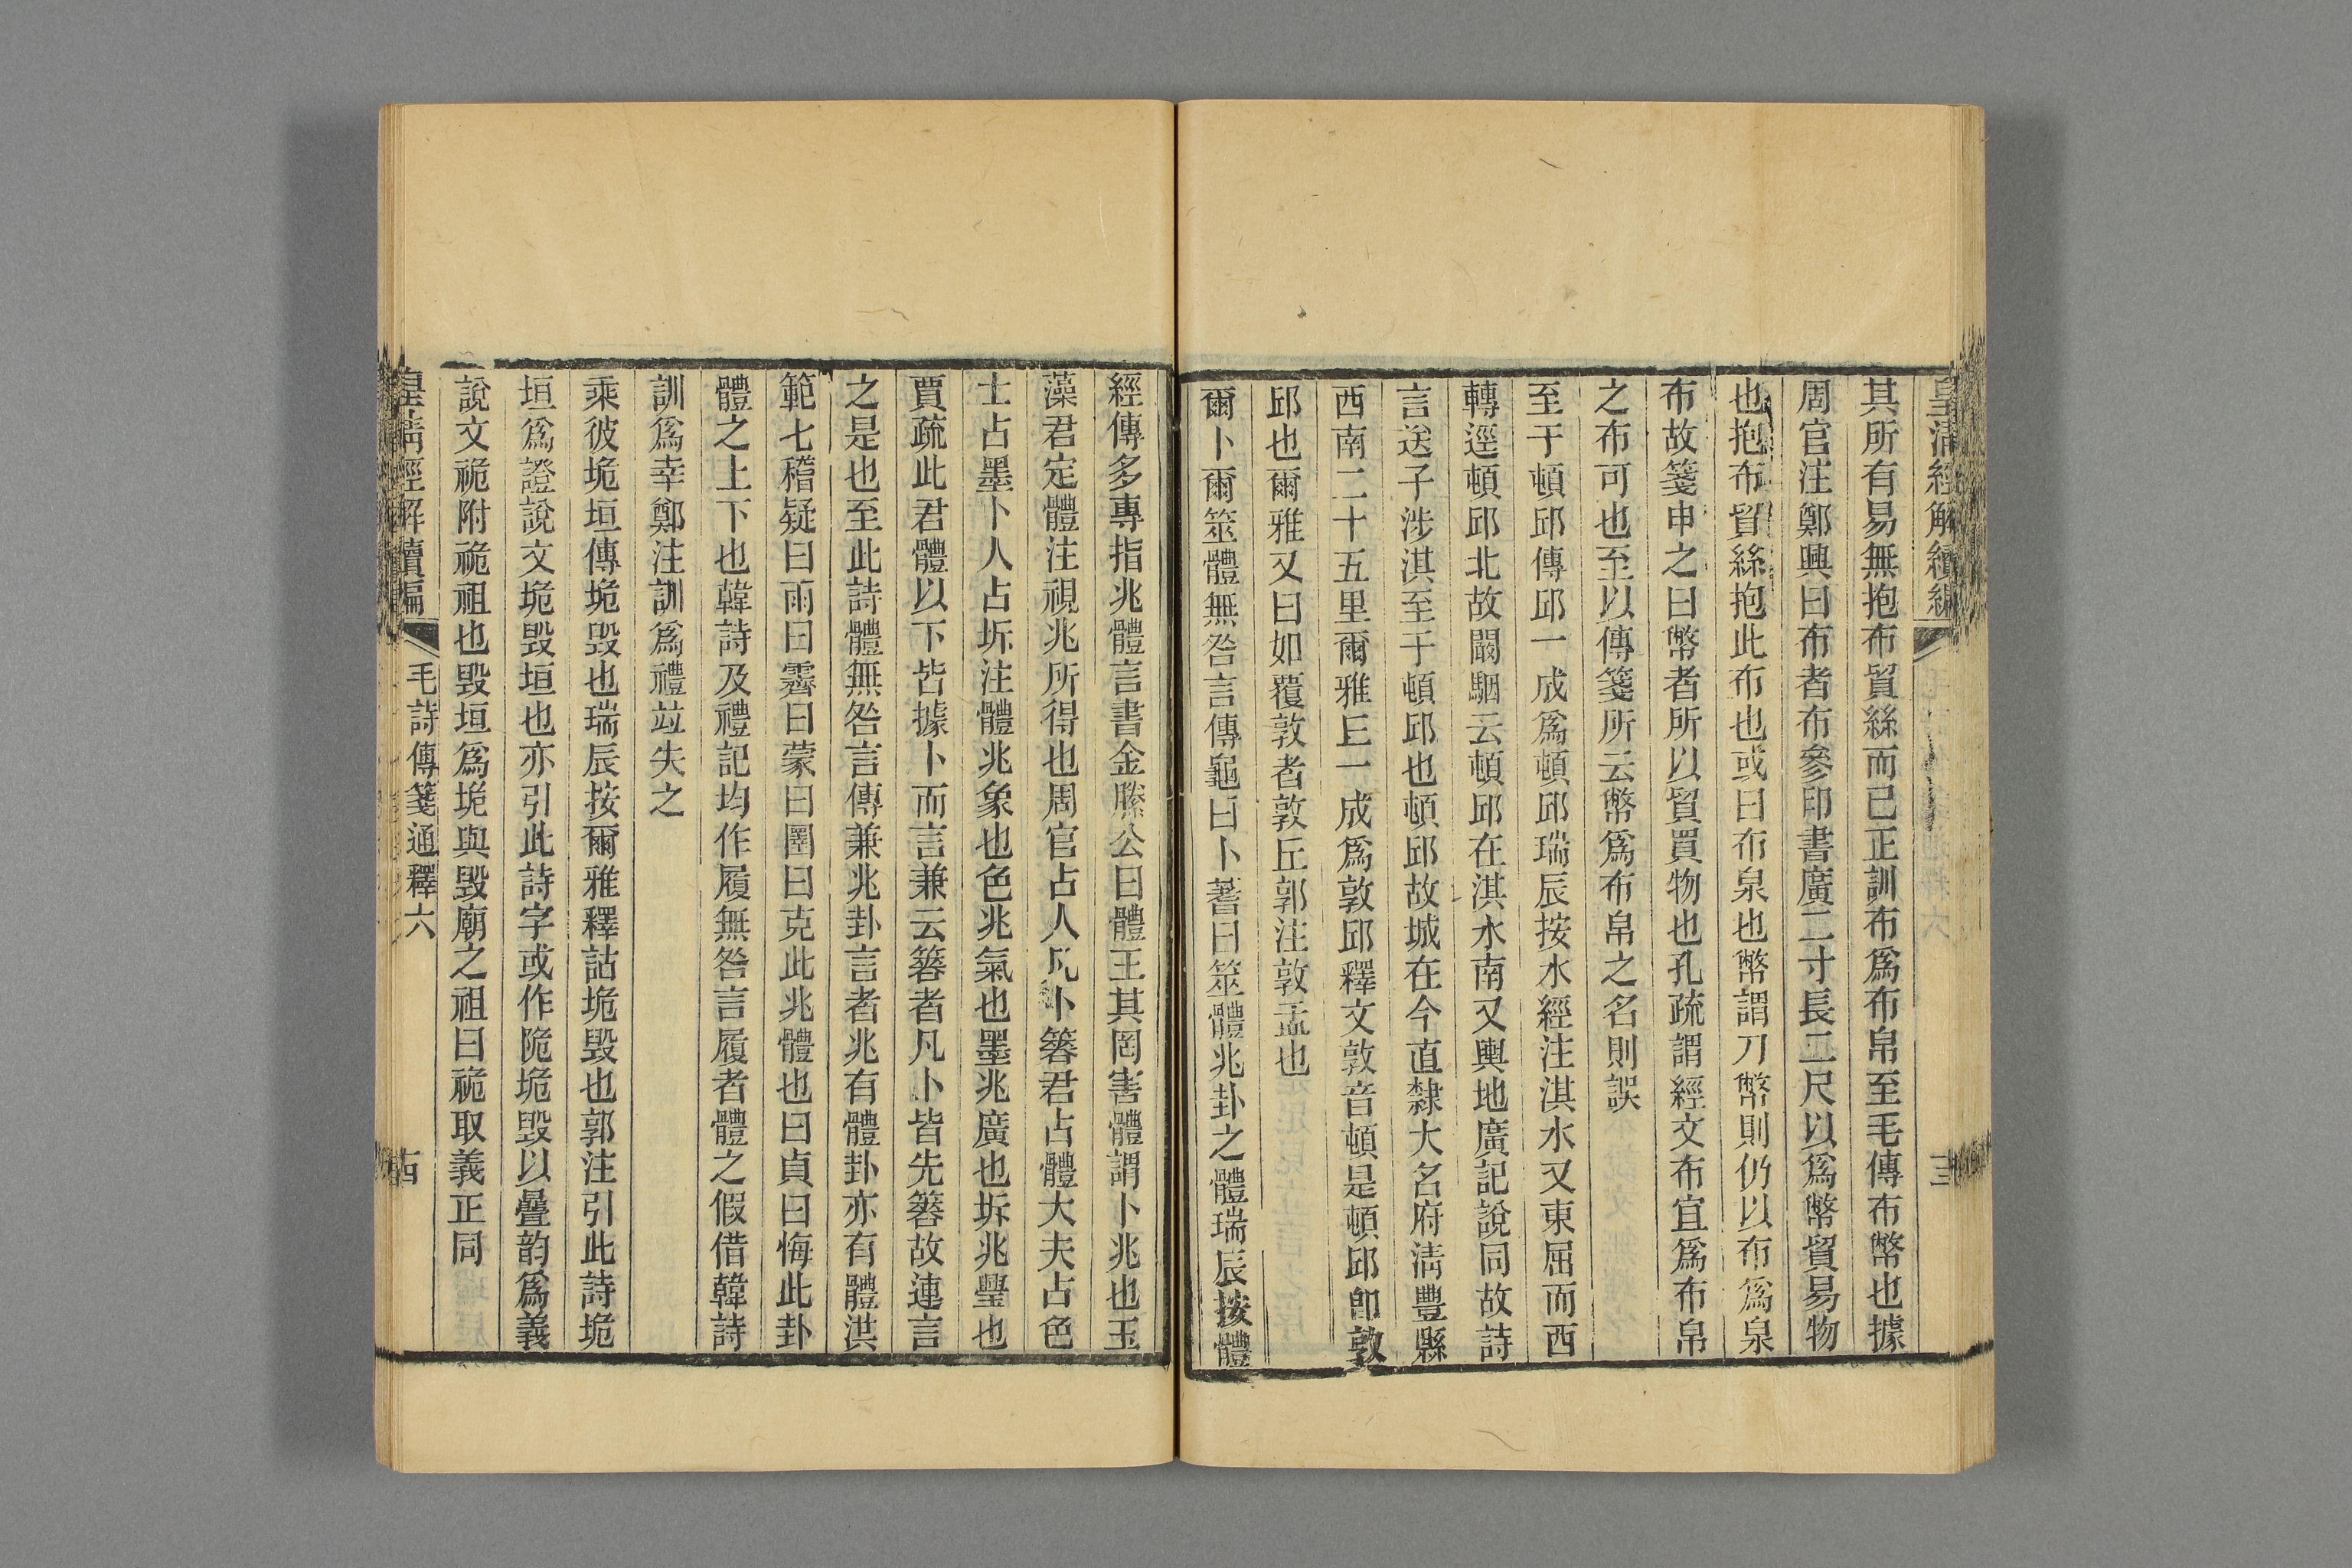 皇淸經解續編
三
其所有易無抱布貿絲而已正訓布爲布帛至毛傳布幣也據
周官注鄭興曰布者布參印書廣二寸長二尺以爲幣貿易物
也抱布貿絲抱此布也或曰布泉也幣謂刀幣則仍以布爲泉
布故箋申之曰幣者所以貿買物也孔疏謂經文布宜爲布帛
之布可也至以傳箋所云幣爲布帛之名則誤
至于頓邱傳邱一成爲頓邱瑞辰按水經注淇水又東屈而西
轉逕頓邱北故闞駰云頓邱在淇水南又輿地廣記說同故詩
言送子涉淇至于頓邱也頓邱故城在今直隸大名府淸豐縣
西南二十五里爾雅丘一成爲敦邱釋文敦音頓是頓邱卽敦
邱也爾雅又曰如覆敦者敦丘郭注敦盂也
爾卜爾筮體無咎言傳龜曰卜蓍曰筮體兆卦之體瑞辰按體
經傳多專指兆體言書金縢公曰體王其罔害體謂卜兆也玉
藻君定體注視兆所得也周官占人凡卜簭君占體大夫占色
士占墨卜人占坼注體兆象也色兆氣也墨兆廣也坼兆璺也
賈疏此君體以下皆據卜而言兼云簭者凡卜皆先簭故連言
之是也至此詩體無咎言傳兼兆卦言者兆有體卦亦有體洪
範七稽疑曰雨曰霽曰蒙曰圛曰克此兆體也曰貞曰悔此卦
體之上下也韓詩及禮記均作履無咎言履者體之假借韓詩
訓爲幸鄭注訓爲禮竝失之
乘彼垝垣傳垝毀也瑞辰按爾雅釋詁垝毀也郭注引此詩垝
垣爲證說文垝毀垣也亦引此詩字或作陒垝毀以疊韵爲義
說文祪附祪祖也毀垣爲垝與毀廟之祖曰祪取義正同
皇淸經解續編
毛詩傳箋通釋六
古